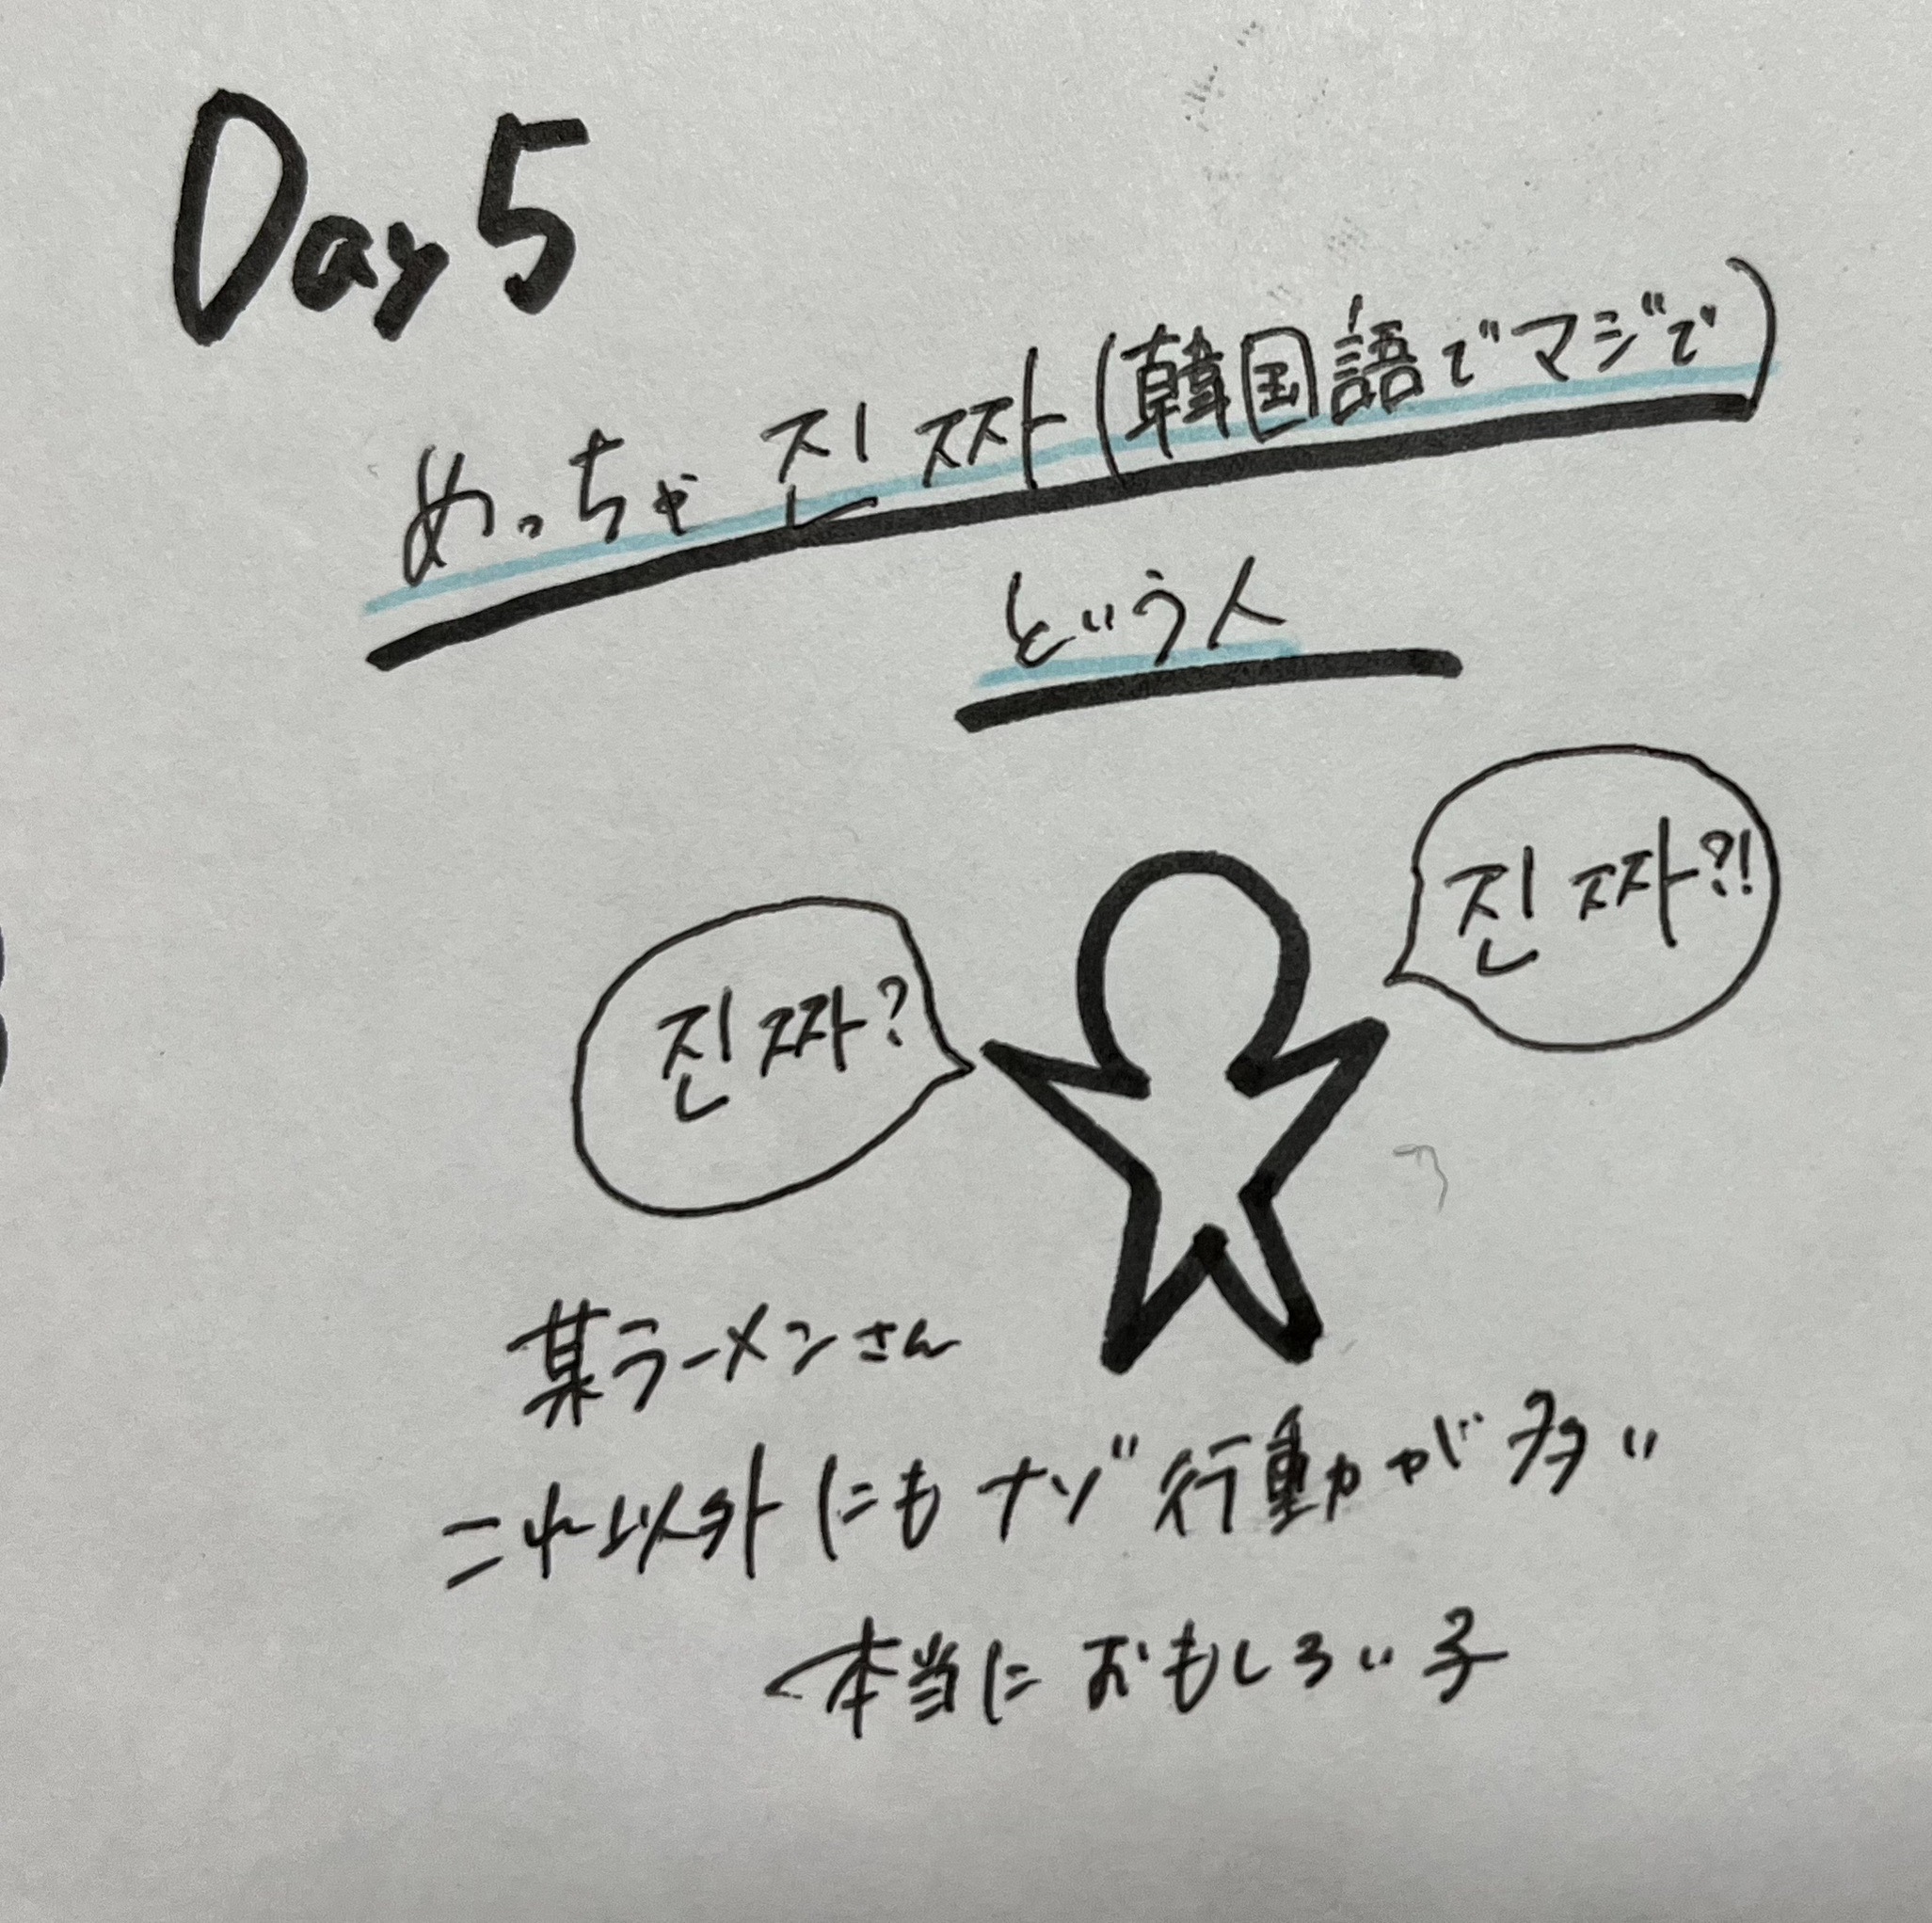 Day 5
めっちゃ 진짜(韓国語でマジで)
という人
진짜?!
진짜?
某ラーメンさん
これ以外にもナゾ行動が多い
本当におもしろい子